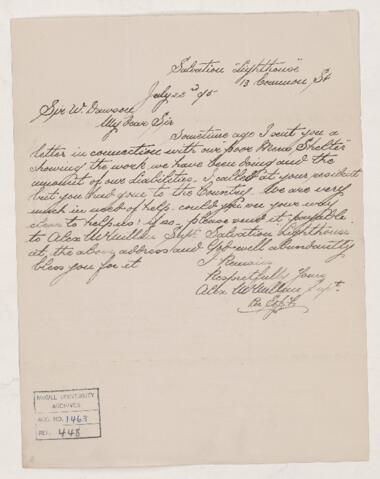 Salvation "Lighthouse"
13 Common St
July 22nd 95
Sir W. Dawson
My Dear Sir
Sometime ago I sent you a
letter in connection with our Poor Mens Shelter
showing the work we have been doing and the
amount of our liabilities. I called at your resident
but you had gone to the Country. We are very
much in need of help. could you see your way
clear to help us if so please send it possible
to Alex McMillan Supt Salvation Lighthouse
at the above address and God will abundantly
bless you for it
I Remain
Respectfully Yours
Alex McMillan Supt.
Per
McGILL UNIVERSITY
ARCHIVES
ACC. NO. 1463
REF. 448